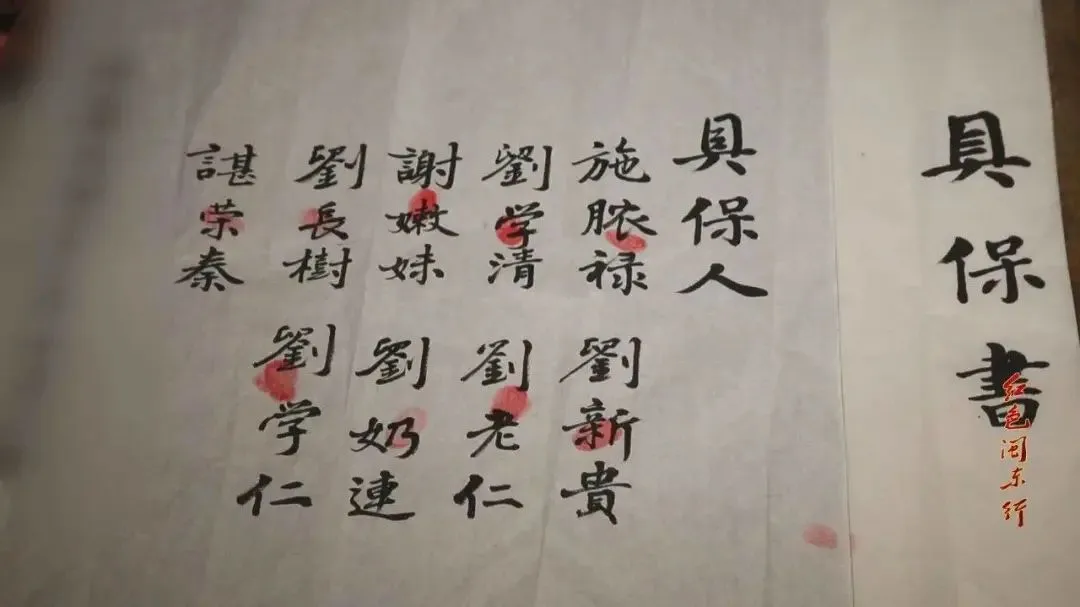 具保書
具保人
施脓禄
劉学清
謝嫩妹
劉長樹
諶荣秦
劉新貴
劉老仁
劉奶連
劉学仁
红色闽东行